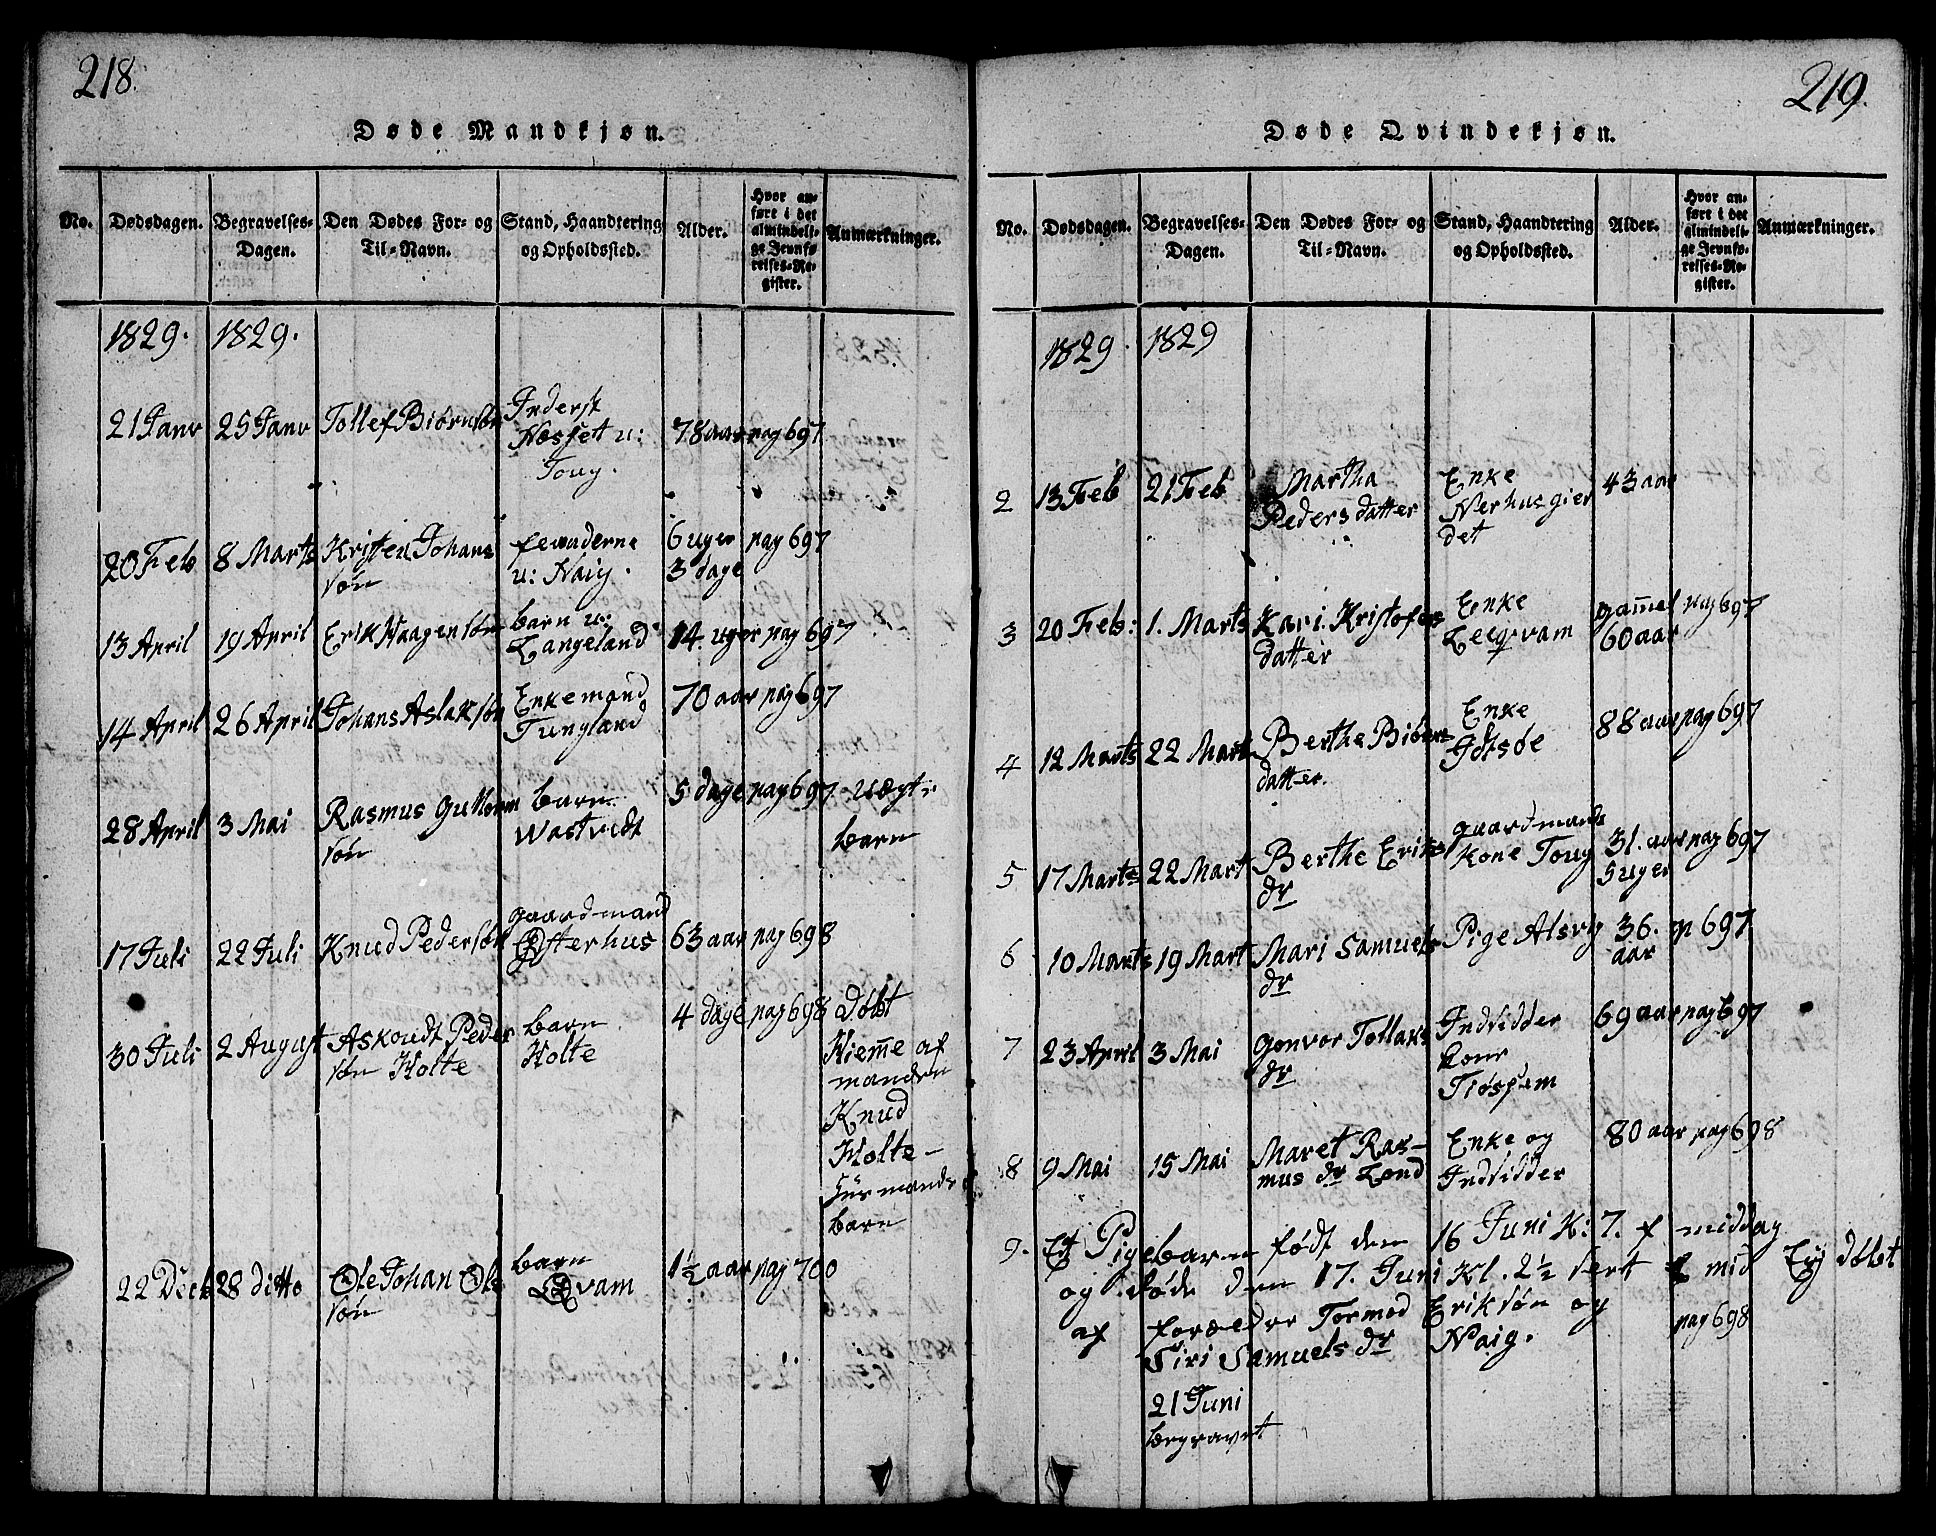 218.
Døde Mandkjøn.
No.
Dødsdagen.
Begravelses-
Dagen.
Den Dødes For- og
Til-Navn.
Stand, Haandtering
og Opholdssted.
Alder.
Hvor an-
ført i det
almindeli-
ge Jevnfø-
relses-Re-
gister.
Anmærkninger.
1829. 1829.
21 Janv 25 Janv Tollef Biørnsøn
Inderst
Næsset u:
Toug.
78 aar pag 697
20 Feb 8 Marts Kristen Johans
søn
u: Naig.
6 uger
3 dage
pag 697
13 April 19 April Erik Haagensøn
barn u:
Langeland
14. uger pag 697
14 April 26 April Johans Aslaksøn
Enkemand
Tungland
70 aar pag 697
28 April 3 Mai Rasmus Guttorm
søn
barn
Wastvedt
5 dage pag 697
uægte
barn
17 Juli 22 Juli Knud Pedersøn
gaardmand
Østerhus
63 aar pag 698
30 Juli 2 August Askoudt Peder
søn Holte
barn
Holte
4 dage pag 698
Døbt
Hiem̅e af
manden
Knud
Holte-
barn
22 Decb 28 ditto Ole Johan Ols
søn
barn
Qvam
1½ aar pag 700
219.
Døde Qvindekjøn.
No.
Dødsdagen.
Begravelses-
Dagen.
Den Dødes For- og
Til-Navn.
Stand, Haandtering
og Opholdssted.
Alder.
Hvor an-
ført i det
almindeli-
ge Jevnfø-
relses-Re-
gister.
Anmærkninger.
1829. 1829
2 13 Feb 21 Feb Martha
Pedersdatter
Enke
Nerhusgier
det
43 aar
3 20 Feb: 1. Marts Kari Kristofers
datter
Enke
Leeqvam
gam̅el
60 aar
pag 697
4 12 Marts 22 Mart Berthe Biørns
datter
Enke
Idsøe
88 aar pag 697
5 17 Marts 22 Mart Berthe Eriks
dr
gaardmands
kone Toug
31. aar
5 uger
pag 697
6 10 Marts 19 Mart Mari Samuels
dr
Pige Alsvig
36.
aar
p 697
7 23 April 3 Mai Gonvor Tollaks
dr
Indsidder
69 aar pag 697
8 9 Mai 15 Mai Maret Ras-
mus dr Lond
Enke og
Indsidder
80 aar pag 698
9. Et Pigebarn født den 16 Juni K: 7. f middag
og døde den 17. Juni Kl. 2½ mid
Ej døbt
af forældre Tormod Eriksøn og
Siri Samuels dr Naig.
pag 698
21 Juni
begravet